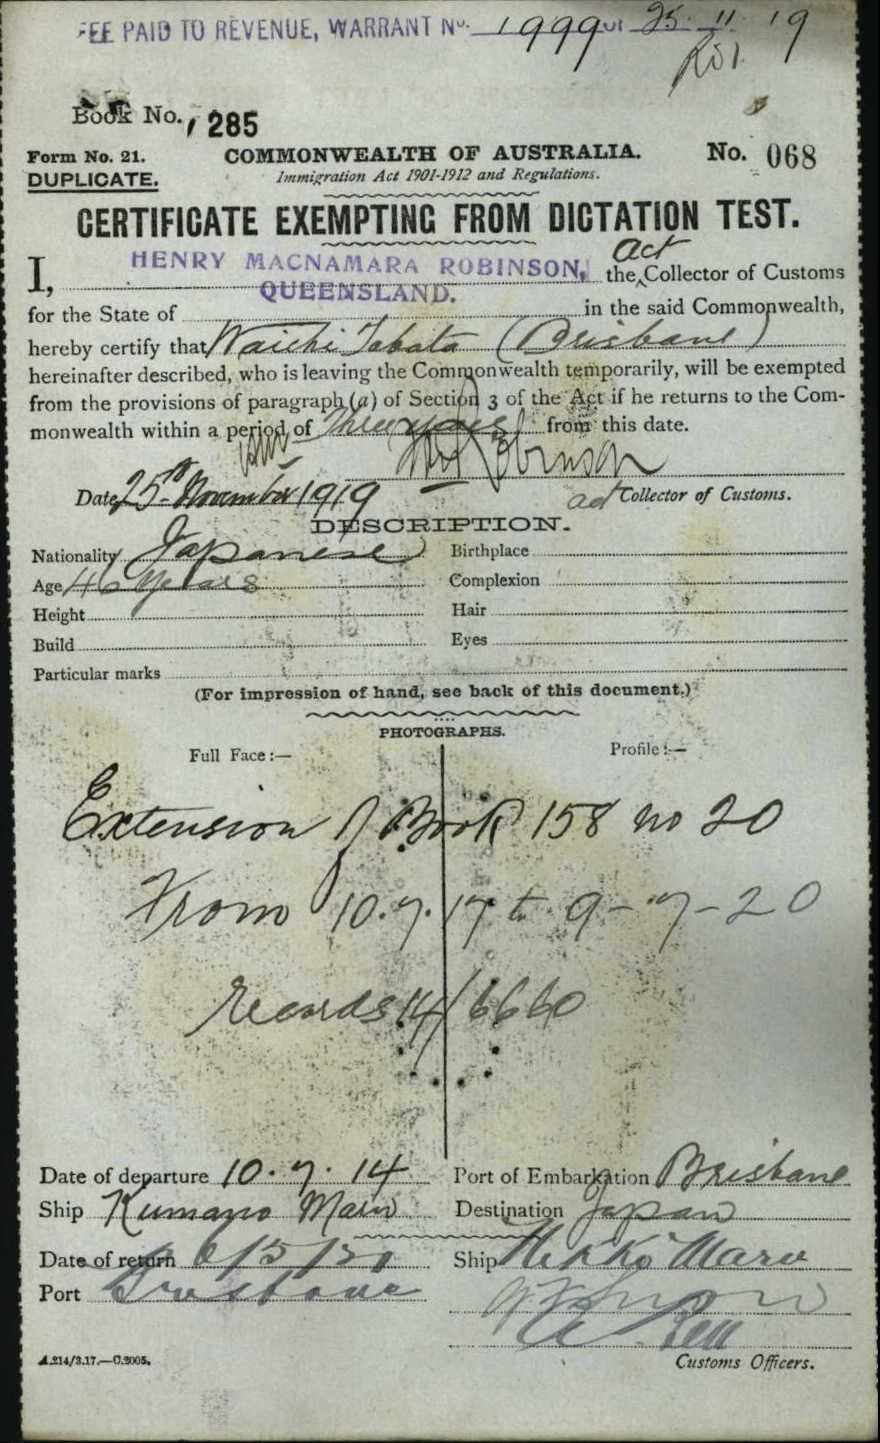 FEE PAID TO REVENUE, WARRANT No. 1999 of 25. 11 '19
Book No. 285
Form No. 21. COMMONWEALTH OF AUSTRALIA. No. 068
DUPLICATE. Immigration Act 1901-1912 and Regulations.
CERTIFICATE EXEMPTING FROM DICTATION TEST.
I, HENRY MACNAMARA ROBINSON, the Act Collector of Customs
for the State of QUEENSLAND. in the said Commonwealth,
hereby certify that Waichi Tabata (Brisbane)
hereinafter described, who is leaving the Commonwealth temporarily, will be exempted
from the provisions of paragraph (a) of Section 3 of the Act if he returns to the Com-
monwealth within a period of three years from this date.
Robinson
Date 25th November 1919 act Collector of Customs.
DESCRIPTION.
Nationality Japanese Birthplace
Age 46 years Complexion
Height Hair
Build Eyes
Particular marks
(For impression of hand, see back of this document.)
PHOTOGRAPHS.
Full Face:— Profile:—
Extension of Book 158 no 20
From 10.7.17 to 9-7-20
records 14/6660
Date of departure 10.7.14 Port of Embarkation Brisbane
Ship Kumano Maru Destination Japan
Date of return 6/5/20 Ship Nikko Maru
Port Brisbane
A.214/3.17.—C.2005. Customs Officers.